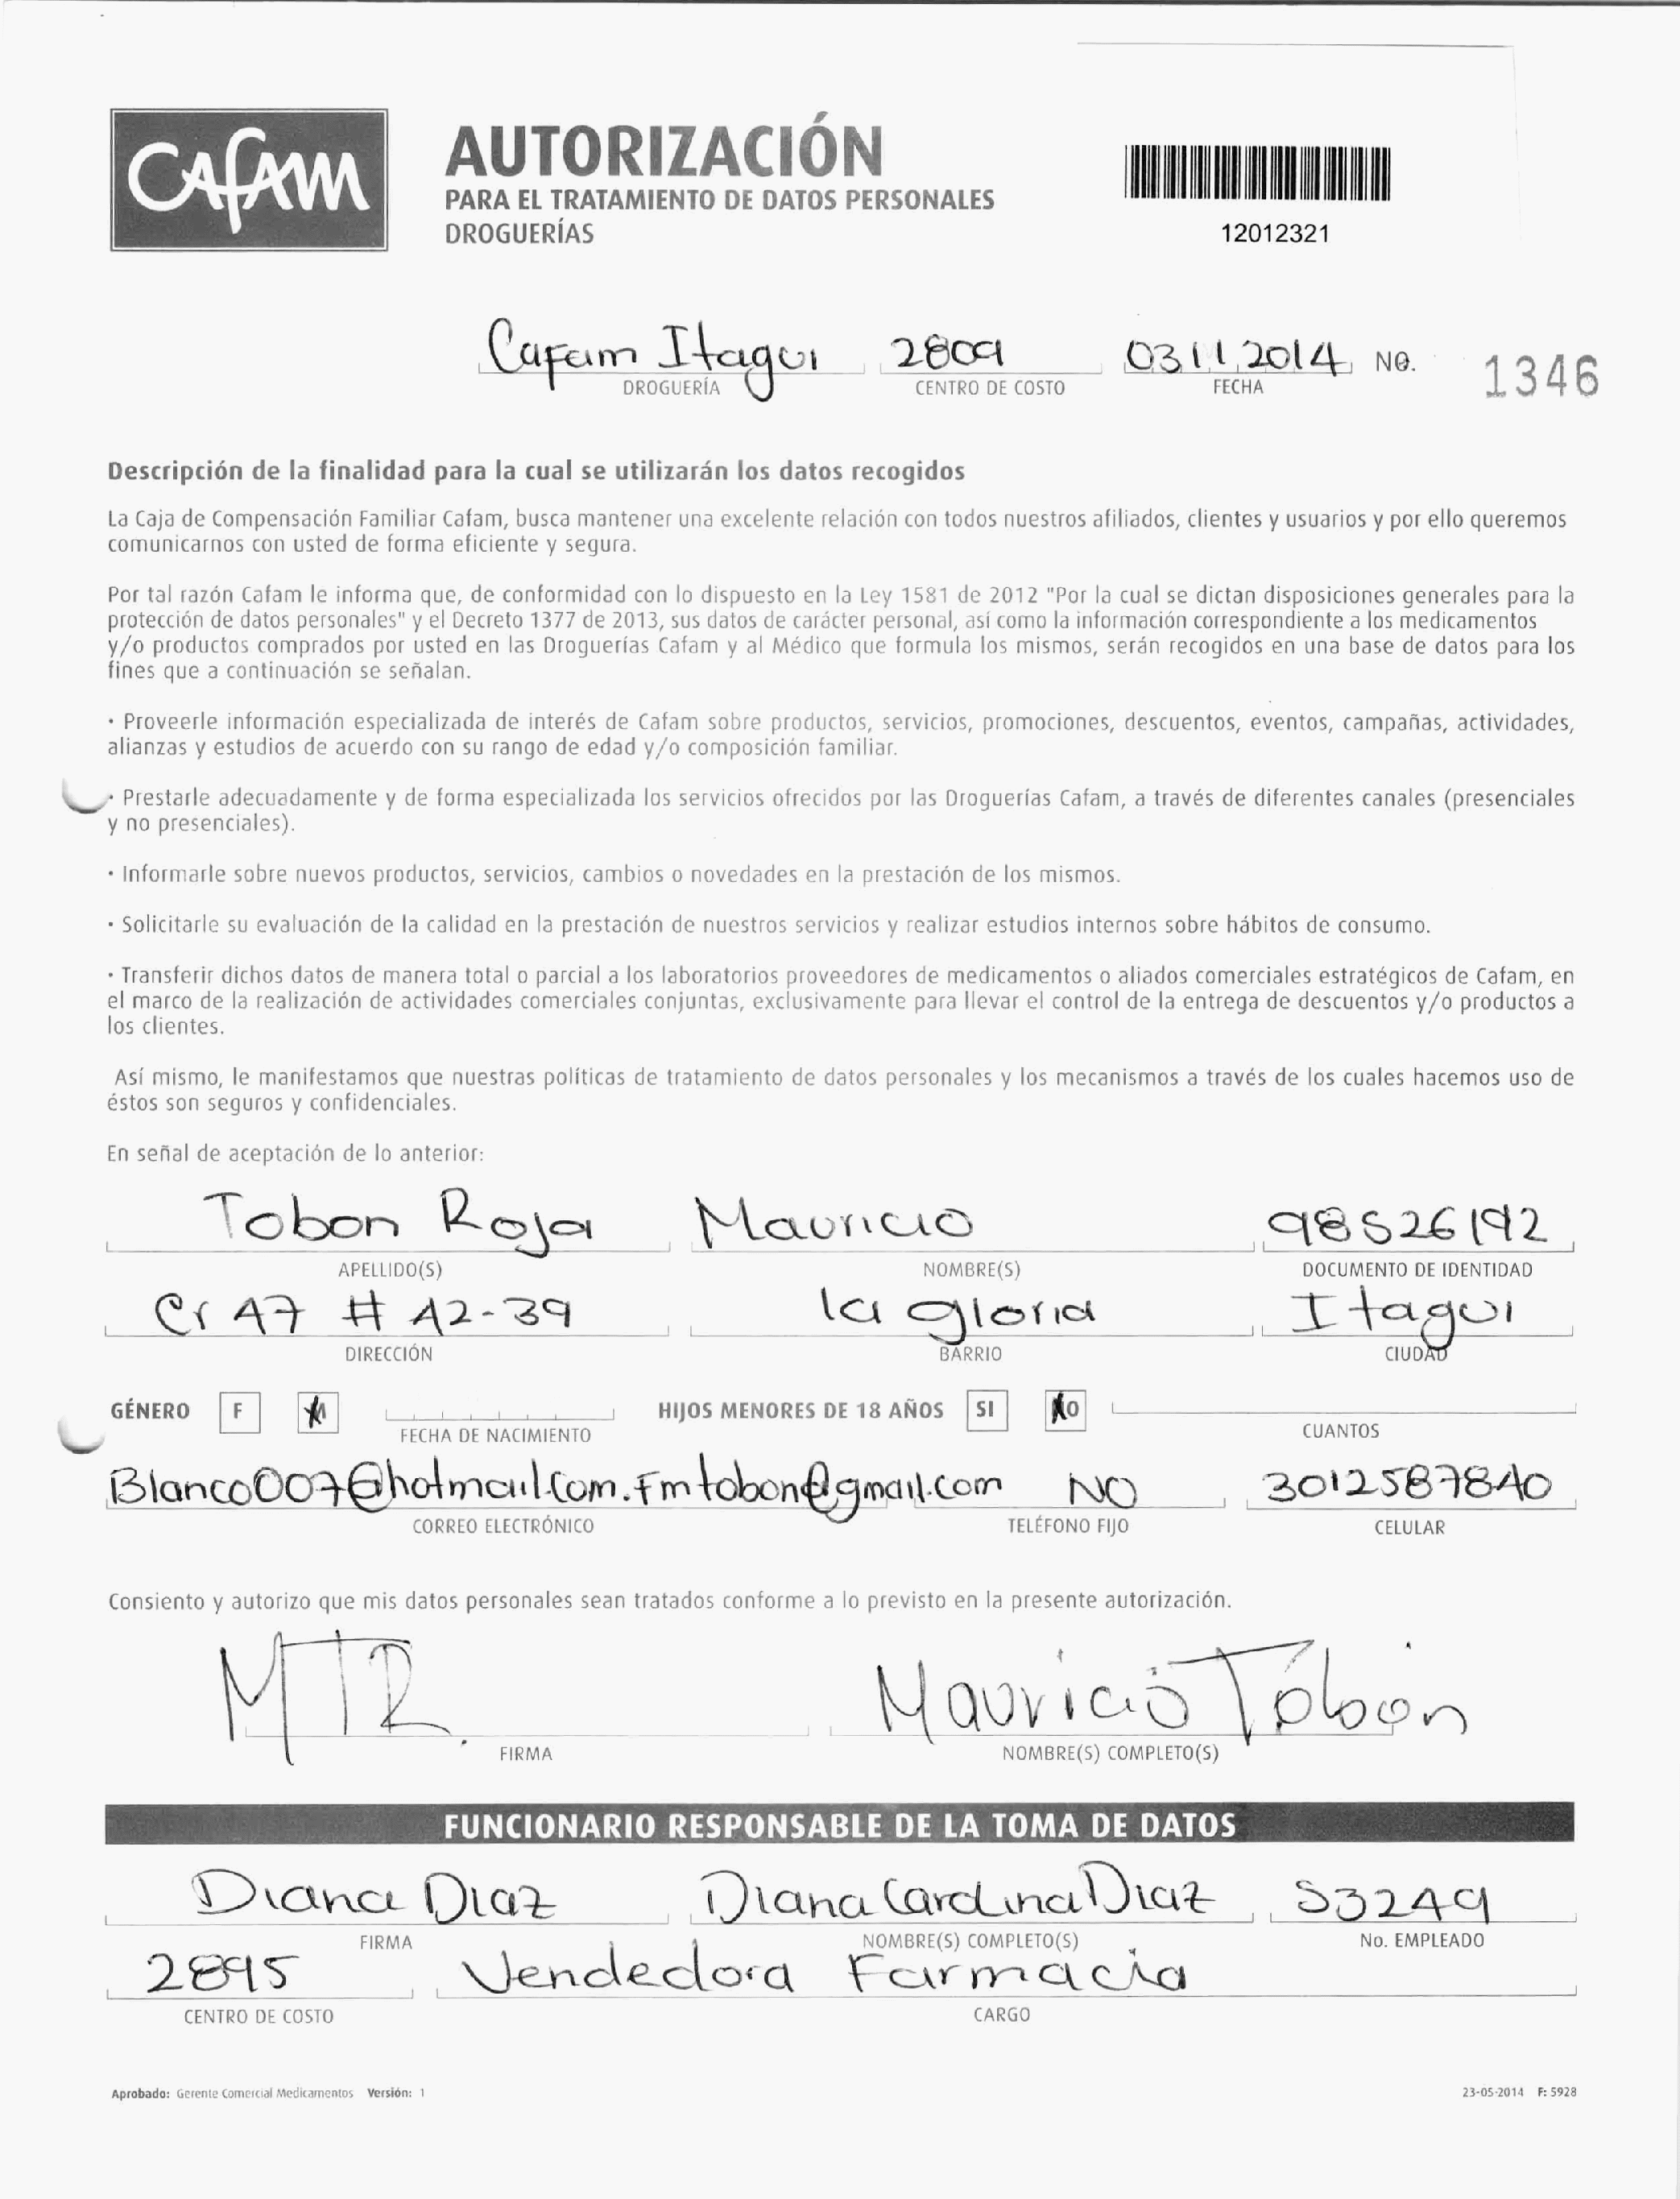 CAFAM
AUTORIZACIÓN
PARA EL TRATAMIENTO DE DATOS PERSONALES
DROGUERÍAS
12012321
Cafam Itagui 2809 03 11 2014 NO. 1346
DROGUERÍA CENTRO DE COSTO FECHA
Descripción de la finalidad para la cual se utilizarán los datos recogidos
La Caja de Compensación Familiar Cafam, busca mantener una excelente relación con todos nuestros afiliados, clientes y usuarios y por ello queremos
comunicarnos con usted de forma eficiente y segura.
Por tal razón Cafam le informa que, de conformidad con lo dispuesto en la Ley 1581 de 2012 "Por la cual se dictan disposiciones generales para la
protección de datos personales" y el Decreto 1377 de 2013, sus datos de carácter personal, así como la información correspondiente a los medicamentos
y/o productos comprados por usted en las Droguerías Cafam y al Médico que formula los mismos, serán recogidos en una base de datos para los
fines que a continuación se señalan.
· Proveerle información especializada de interés de Cafam sobre productos, servicios, promociones, descuentos, eventos, campañas, actividades,
alianzas y estudios de acuerdo con su rango de edad y/o composición familiar.
· Prestarle adecuadamente y de forma especializada los servicios ofrecidos por las Droguerías Cafam, a través de diferentes canales (presenciales
y no presenciales).
· Informarle sobre nuevos productos, servicios, cambios o novedades en la prestación de los mismos.
· Solicitarle su evaluación de la calidad en la prestación de nuestros servicios y realizar estudios internos sobre hábitos de consumo.
· Transferir dichos datos de manera total o parcial a los laboratorios proveedores de medicamentos o aliados comerciales estratégicos de Cafam, en
el marco de la realización de actividades comerciales conjuntas, exclusivamente para llevar el control de la entrega de descuentos y/o productos a
los clientes.
Así mismo, le manifestamos que nuestras políticas de tratamiento de datos personales y los mecanismos a través de los cuales hacemos uso de
éstos son seguros y confidenciales.
En señal de aceptación de lo anterior:
Tobon Roja Mauricio 98526192
APELLIDO(S) NOMBRE(S) DOCUMENTO DE IDENTIDAD
Cr 47 # 42-39 la gloria Itagui
DIRECCIÓN BARRIO CIUDAD
GÉNERO F M HIJOS MENORES DE 18 AÑOS SI NO
FECHA DE NACIMIENTO CUANTOS
Blanco007@hotmail.com.fmtobon@gmail.com NO 3012587840
CORREO ELECTRÓNICO TELÉFONO FIJO CELULAR
Consiento y autorizo que mis datos personales sean tratados conforme a lo previsto en la presente autorización.
MTR. Mauricio Tobón
FIRMA NOMBRE(S) COMPLETO(S)
FUNCIONARIO RESPONSABLE DE LA TOMA DE DATOS
Diana Diaz Diana Carolina Diaz 53249
FIRMA NOMBRE(S) COMPLETO(S) No. EMPLEADO
2895 Vendedora Farmacia
CENTRO DE COSTO CARGO
Aprobado: Gerente Comercial Medicamentos Versión: 1 23-05-2014 F: 5928